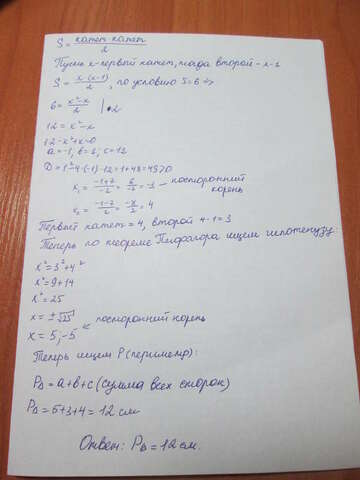 S = катет·катет / 2
Пусть x-первый катет, тогда второй - x-1
S = x·(x-1) / 2, по условию S=6 =>
6 = x²-x / 2 | ·2
12 = x²-x
12-x²+x=0
a=-1, b=1; c=12
D=1²-4·(-1)·12=1+48=49>0
x₁ = -1+7 / -2 = 6 / -2 = -3 - посторонний корень
x₂ = -1-7 / -2 = -8 / -2 = 4
Первый катет = 4, второй 4-1=3
Теперь по теореме Пифагора ищем гипотенузу:
x²=3²+4²
x²=9+14
x²=25
x = ±√25
x = 5;-5 посторонний корень
Теперь ищем P(периметр):
P∆ = a+b+c (сумма всех сторон)
P∆ = 5+3+4 = 12 см
Ответ: P∆ = 12 см.